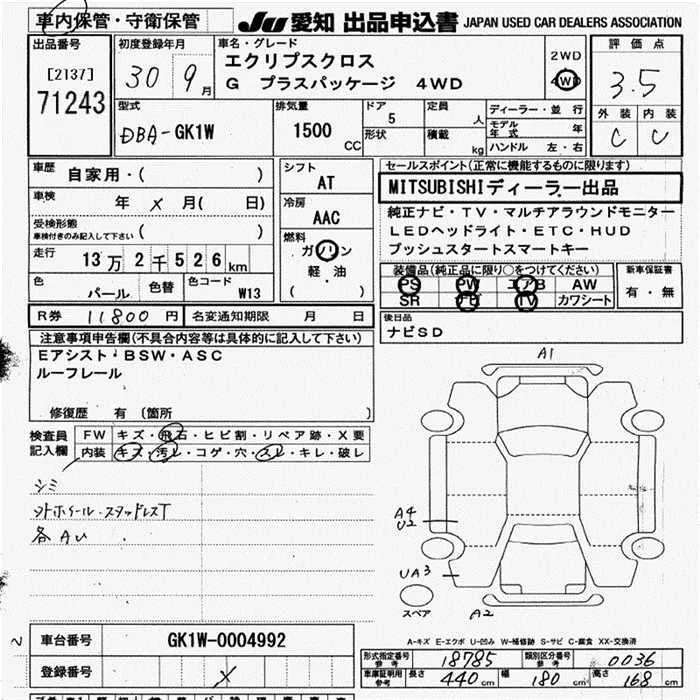 車内保管・守衛保管
JU 愛知 出品申込書 JAPAN USED CAR DEALERS ASSOCIATION
出品番号
[2137]
71243
初度登録年月
30年9月
車名・グレード
エクリプスクロス
G プラスパッケージ 4WD
2WD
4WD
評価点
3.5
外装 内装
C C
型式
DBA-GK1W
排気量
1500 CC
ドア
5
形状
定員 人
積載 kg
ディーラー・並行
モデル年式 年
ハンドル 左・右
車歴 自家用・( )
車検 年 × 月( 日)
受検形態
車検付きのみ記入して下さい ( )
走行 13万2千526km
色 パール 色替 色コード W13
シフト
AT
冷房
AAC
燃料
ガソリン
軽・油
( )
セールスポイント(正常に機能するものに限ります)
MITSUBISHIディーラー出品
純正ナビ・TV・マルチアラウンドモニター
LEDヘッドライト・ETC・HUD
プッシュスタートスマートキー
装備品(純正品に限り○をつけてください)
PS PW エアB AW
SR ナビ TV カワシート
新車保証書
有・無
R券 11800円 名変通知期限 月 日
後日品
ナビSD
注意事項申告欄(不具合内容等は具体的に記入して下さい)
Eアシスト・BSW・ASC
ルーフレール
修復歴 有 〔箇所 〕
検査員記入欄
FW キズ・飛石・ヒビ割・リペア跡・X要
内装 キズ・汚レ・コゲ・穴・スレ・キレ・破レ
シミ
外ホイール・スタッドレスT
各AU
A1
A4
U2
UA3
スペア
A2
A-キズ E-エクボ U-凹み W-補修跡 S-サビ C-腐食 XX-交換済
車台番号 GK1W-0004992
登録番号 ×
形式指定番号 参考 18785 類別区分番号 参考 0036
車庫証明用 参考 長さ 440cm 幅 180cm 高さ 168cm